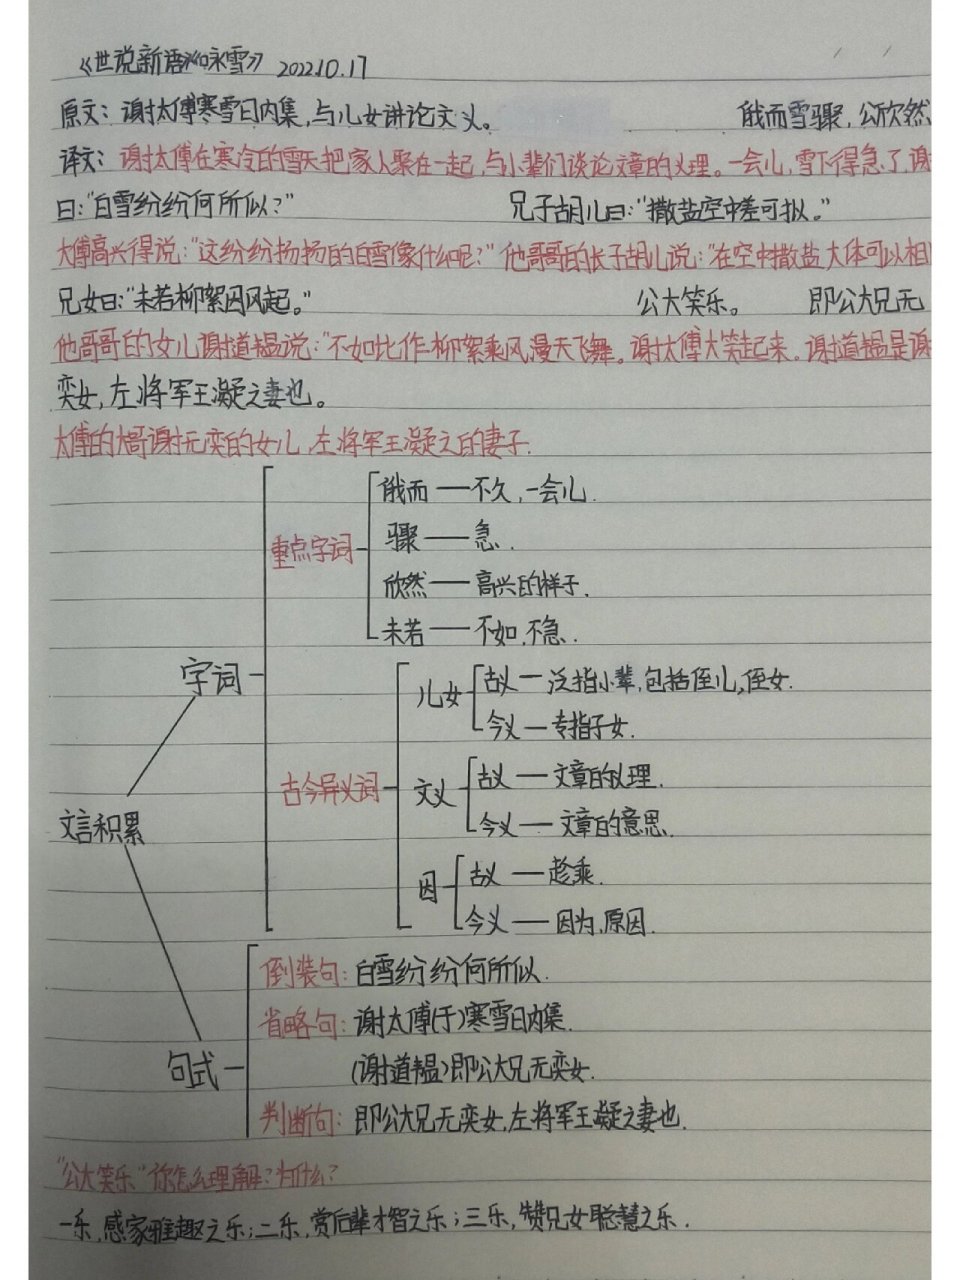 《世说新语》《咏雪》 2022.10.17
原文：谢太傅寒雪日内集，与儿女讲论文义。 俄而雪骤，公欣然
译文：谢太傅在寒冷的雪天把家人聚在一起，与小辈们谈论文章的义理。一会儿，雪下得急了，谢
曰："白雪纷纷何所似？" 兄子胡儿曰："撒盐空中差可拟。"
太傅高兴得说："这纷纷扬扬的白雪像什么呢？"他哥哥的长子胡儿说："在空中撒盐大体可以相
兄女曰："未若柳絮因风起。" 公大笑乐。 即公大兄无
他哥哥的女儿谢道韫说："不如比作柳絮乘风漫天飞舞。谢太傅大笑起来。谢道韫是谢
奕女，左将军王凝之妻也。
太傅的大哥谢无奕的女儿，左将军王凝之的妻子.
俄而 — 不久，一会儿.
重点字词 骤 — 急.
欣然 — 高兴的样子.
未若 — 不如，不急.
字词
儿女 古义 — 泛指小辈，包括侄儿，侄女.
今义 — 专指子女.
古今异义词 文义 古义 — 文章的义理.
今义 — 文章的意思.
文言积累
因 古义 — 趁乘.
今义 — 因为，原因.
倒装句：白雪纷纷何所似.
省略句：谢太傅(于)寒雪日内集.
句式 (谢道韫)即公大兄无奕女.
判断句：即公大兄无奕女，左将军王凝之妻也.
"公大笑乐"你怎么理解？为什么？
一乐，感家雅趣之乐；二乐，赏后辈才智之乐；三乐，赞兄女聪慧之乐.